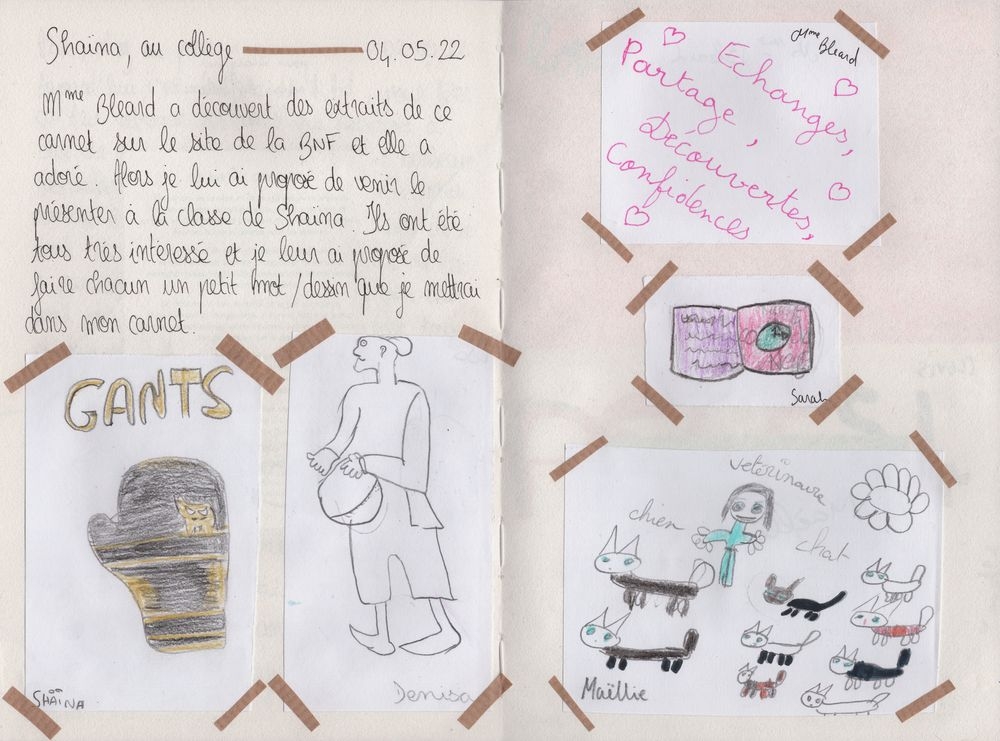 Shaïna, au collège 04.05.22
Mme Bleard a découvert des extraits de ce
carnet sur le site de la BNF et elle a
adoré. Alors je lui ai proposé de venir le
présenter à la classe de Shaïna. Ils ont été
tous très interessé et je leur ai proposé de
faire chacun un petit mot/dessin que je mettrai
dans mon carnet.
GANTS
SHAÏNA
Denisa
Mme Bleard
Echanges,
Partage,
Découvertes,
Confidences
Sarah
vetérinaire
chien
chat
Maëllie